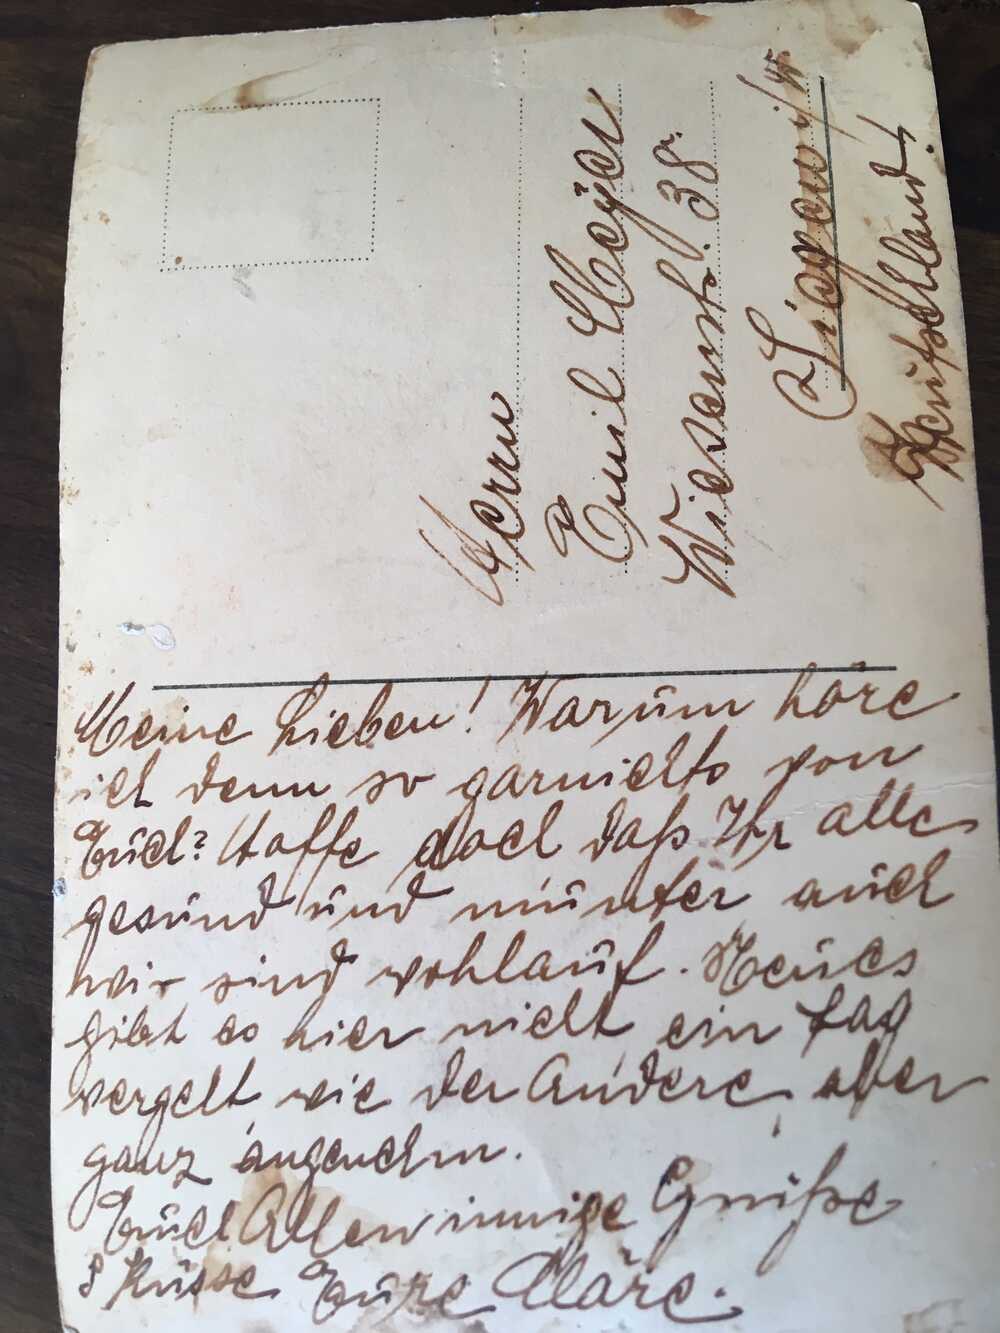 Meine Lieben! Warum höre
ich denn so garnichts von
Euch? Hoffe doch daß Ihr alle
gesund und munter auch
wir sind wohlauf. Neues
gibt es hier nicht ein Tag
vergeht wie der Andere aber
ganz angenehm.
Euch Allen innige Grüße
& Küsse Eure Kläre.
Herrn
Emil Meyer
Wiesenstr. 38.
Siegen i/W
Deutschland!